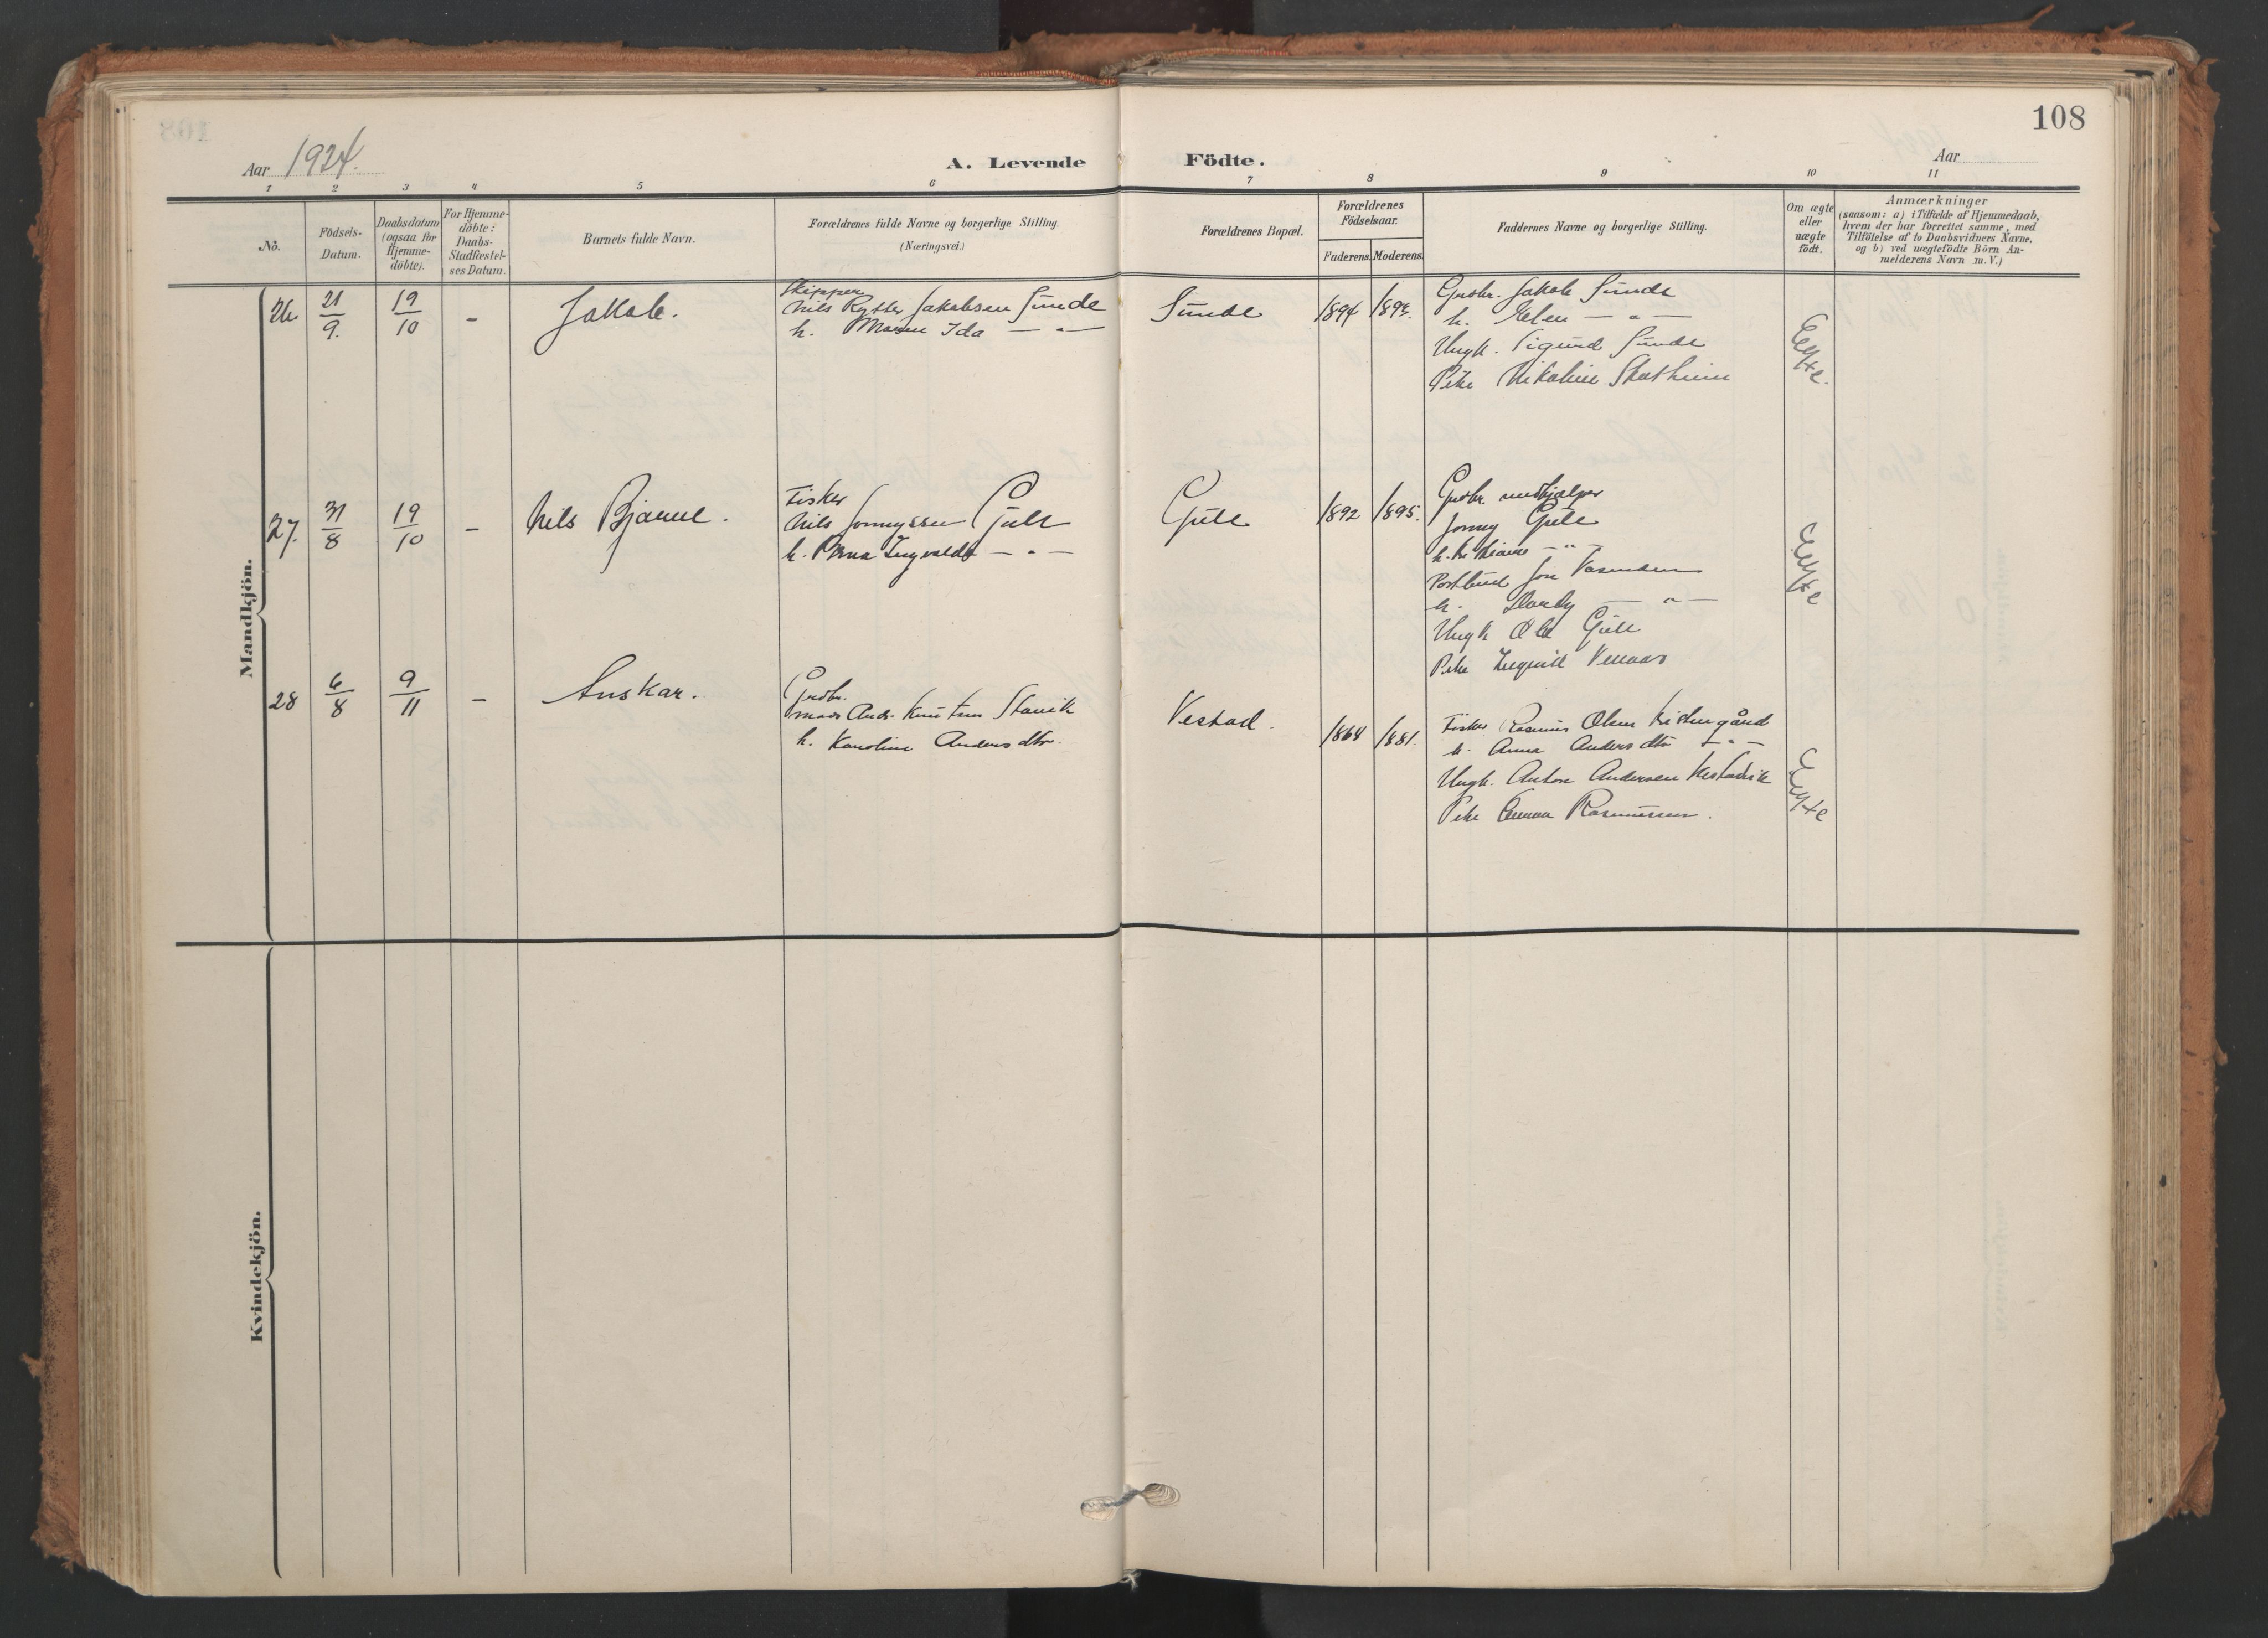 108
Aar 1924.
A. Levende Födte.
Aar
1 2 3 4 5 6 7 8 9 10 11
No.
Födsels-
Datum.
Daabsdatum
(ogsaa for
Hjemme-
döbte).
For Hjemme-
döbte:
Daabs-
Stadfæstel-
ses Datum.
Barnets fulde Navn.
Forældrenes fulde Navne og borgerlige Stilling.
(Næringsvei.)
Forældrenes Bopæl.
Forældrenes
Födselsaar.
Faderens. Moderens.
Faddernes Navne og borgerlige Stilling.
Om ægte
eller
uægte
födt.
Anmærkninger
(saasom: a) i Tilfælde af Hjemmedaab,
hvem der har forrettet samme, med
Tilföielse af to Daabsvidners Navne,
og b) ved uægtefödte Börn An-
melderens Navn m. V.)
Mandkjön.
26. 21/9. 19/10 - Jakob.
Skipper
Nils Rytter Jakobsen Sunde
h. Maren Ida — " —
Sunde 1894 1893.
Grdbr. Jakob Sunde
h. Elen — " —
Ungk. Sigurd Sunde
Pike Nikoline Skotheim
Egte.
27. 31/8 19/10 - Nils Bjarne.
Fisker
Nils Jonnyssen Gule
h. Anna Ingvaldd — " —
Gule 1892 1895.
Grdbr. medhjælper
Jonny Gule
h. — " —
Postbud Jon
h. — " —
Ungk Ole Gule
Pike
Egte
28 6/8 9/11 - Anskar.
Grdbr.
Mads And. Knutsen Stavik
h. Karoline Andersdtr.
Vestad. 1864 1881.
Fisker Rasmus Olsen
h. Anna Andersdtr — " —
Ungk. Anton Andersen
Pike Emma Rasmussen.
Egte
Kvindekjön.